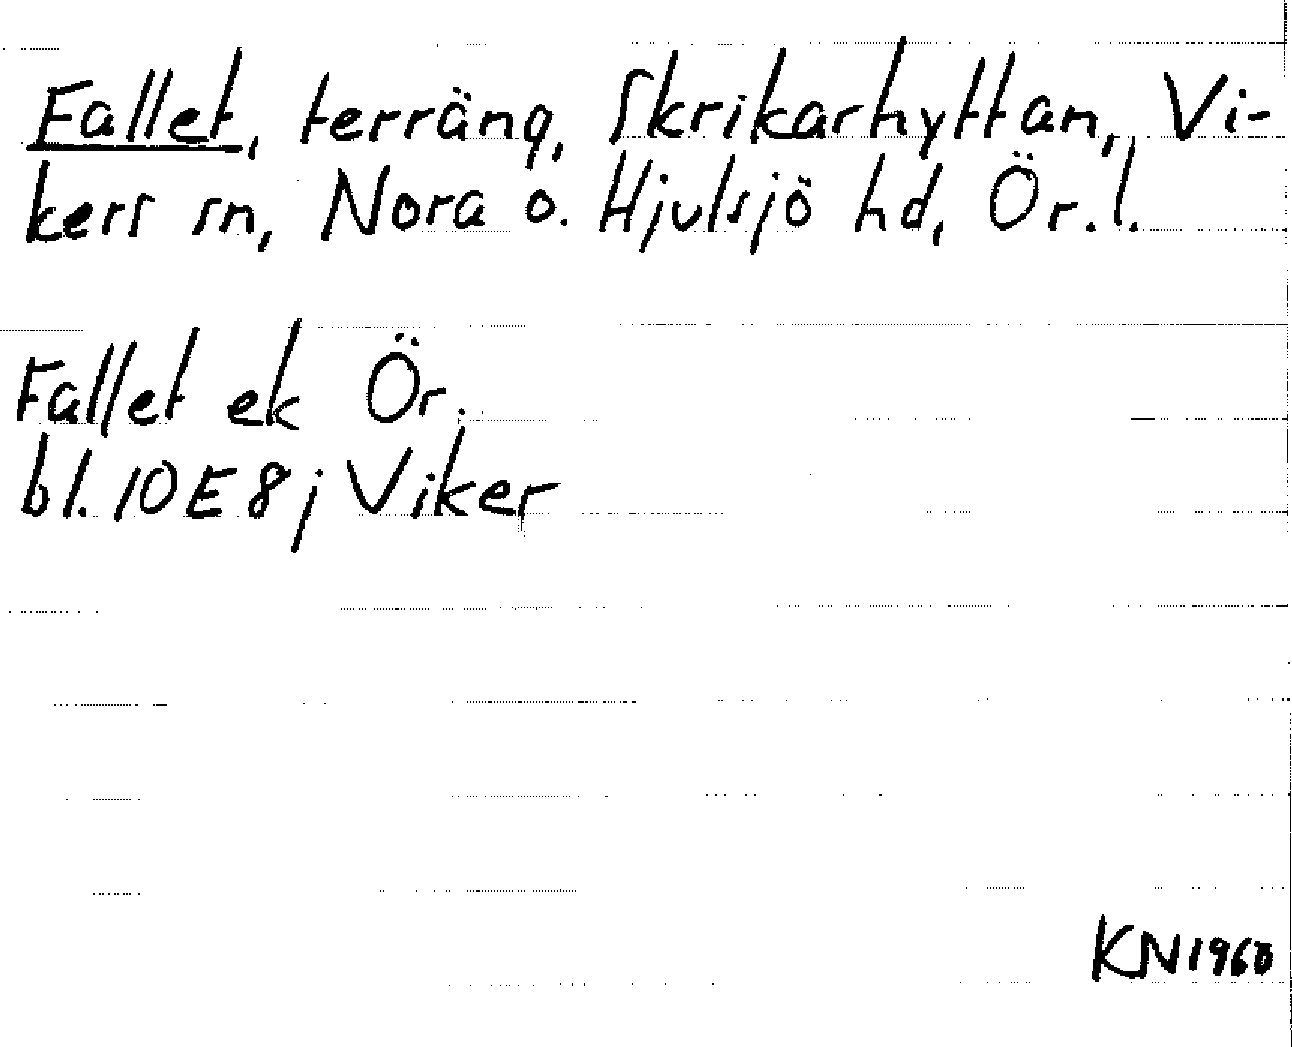 Fallet, terräng, Skrikarhyttan, Vi-
kers sn, Nora o. Hjulsjö hd, Ör.l.
Fallet ek Ör.
bl. 10E8j Viker
KN1960